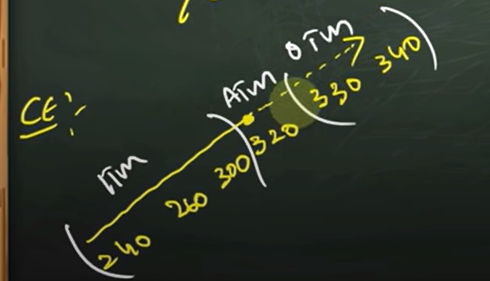 CE:-
ITM ATM OTM
240 260 300 320 330 340